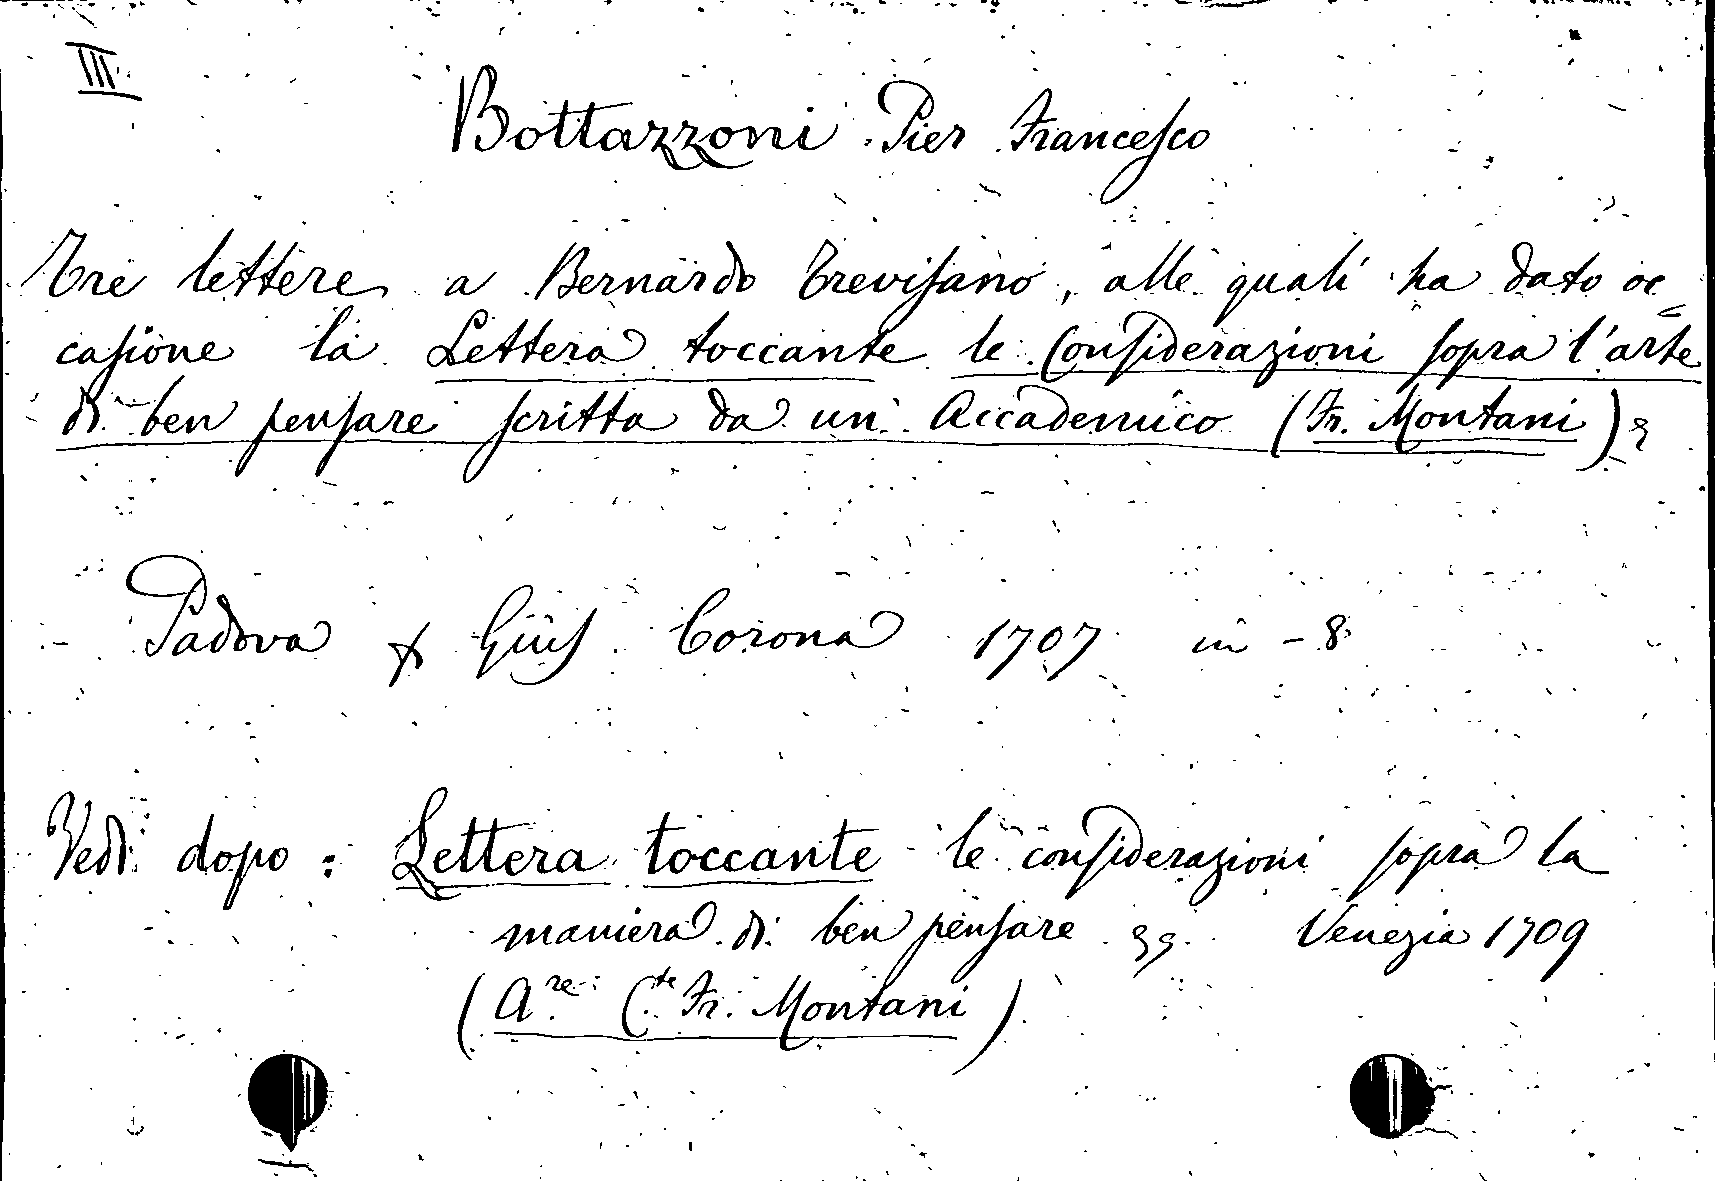 III
Bottazzoni Pier Francesco
Tre lettere a Bernardo Trevisano, alle quali ha dato oc=
casione la Lettera toccante le Considerazioni sopra l'arte
di ben pensare scritta da un Accademico (Fr. Montani)
Padova Gius Corona 1707 in-8
Vedi dopo: Lettera toccante le considerazioni sopra la
maniera di ben pensare Venezia 1709
(Are: Cte Fr. Montani)